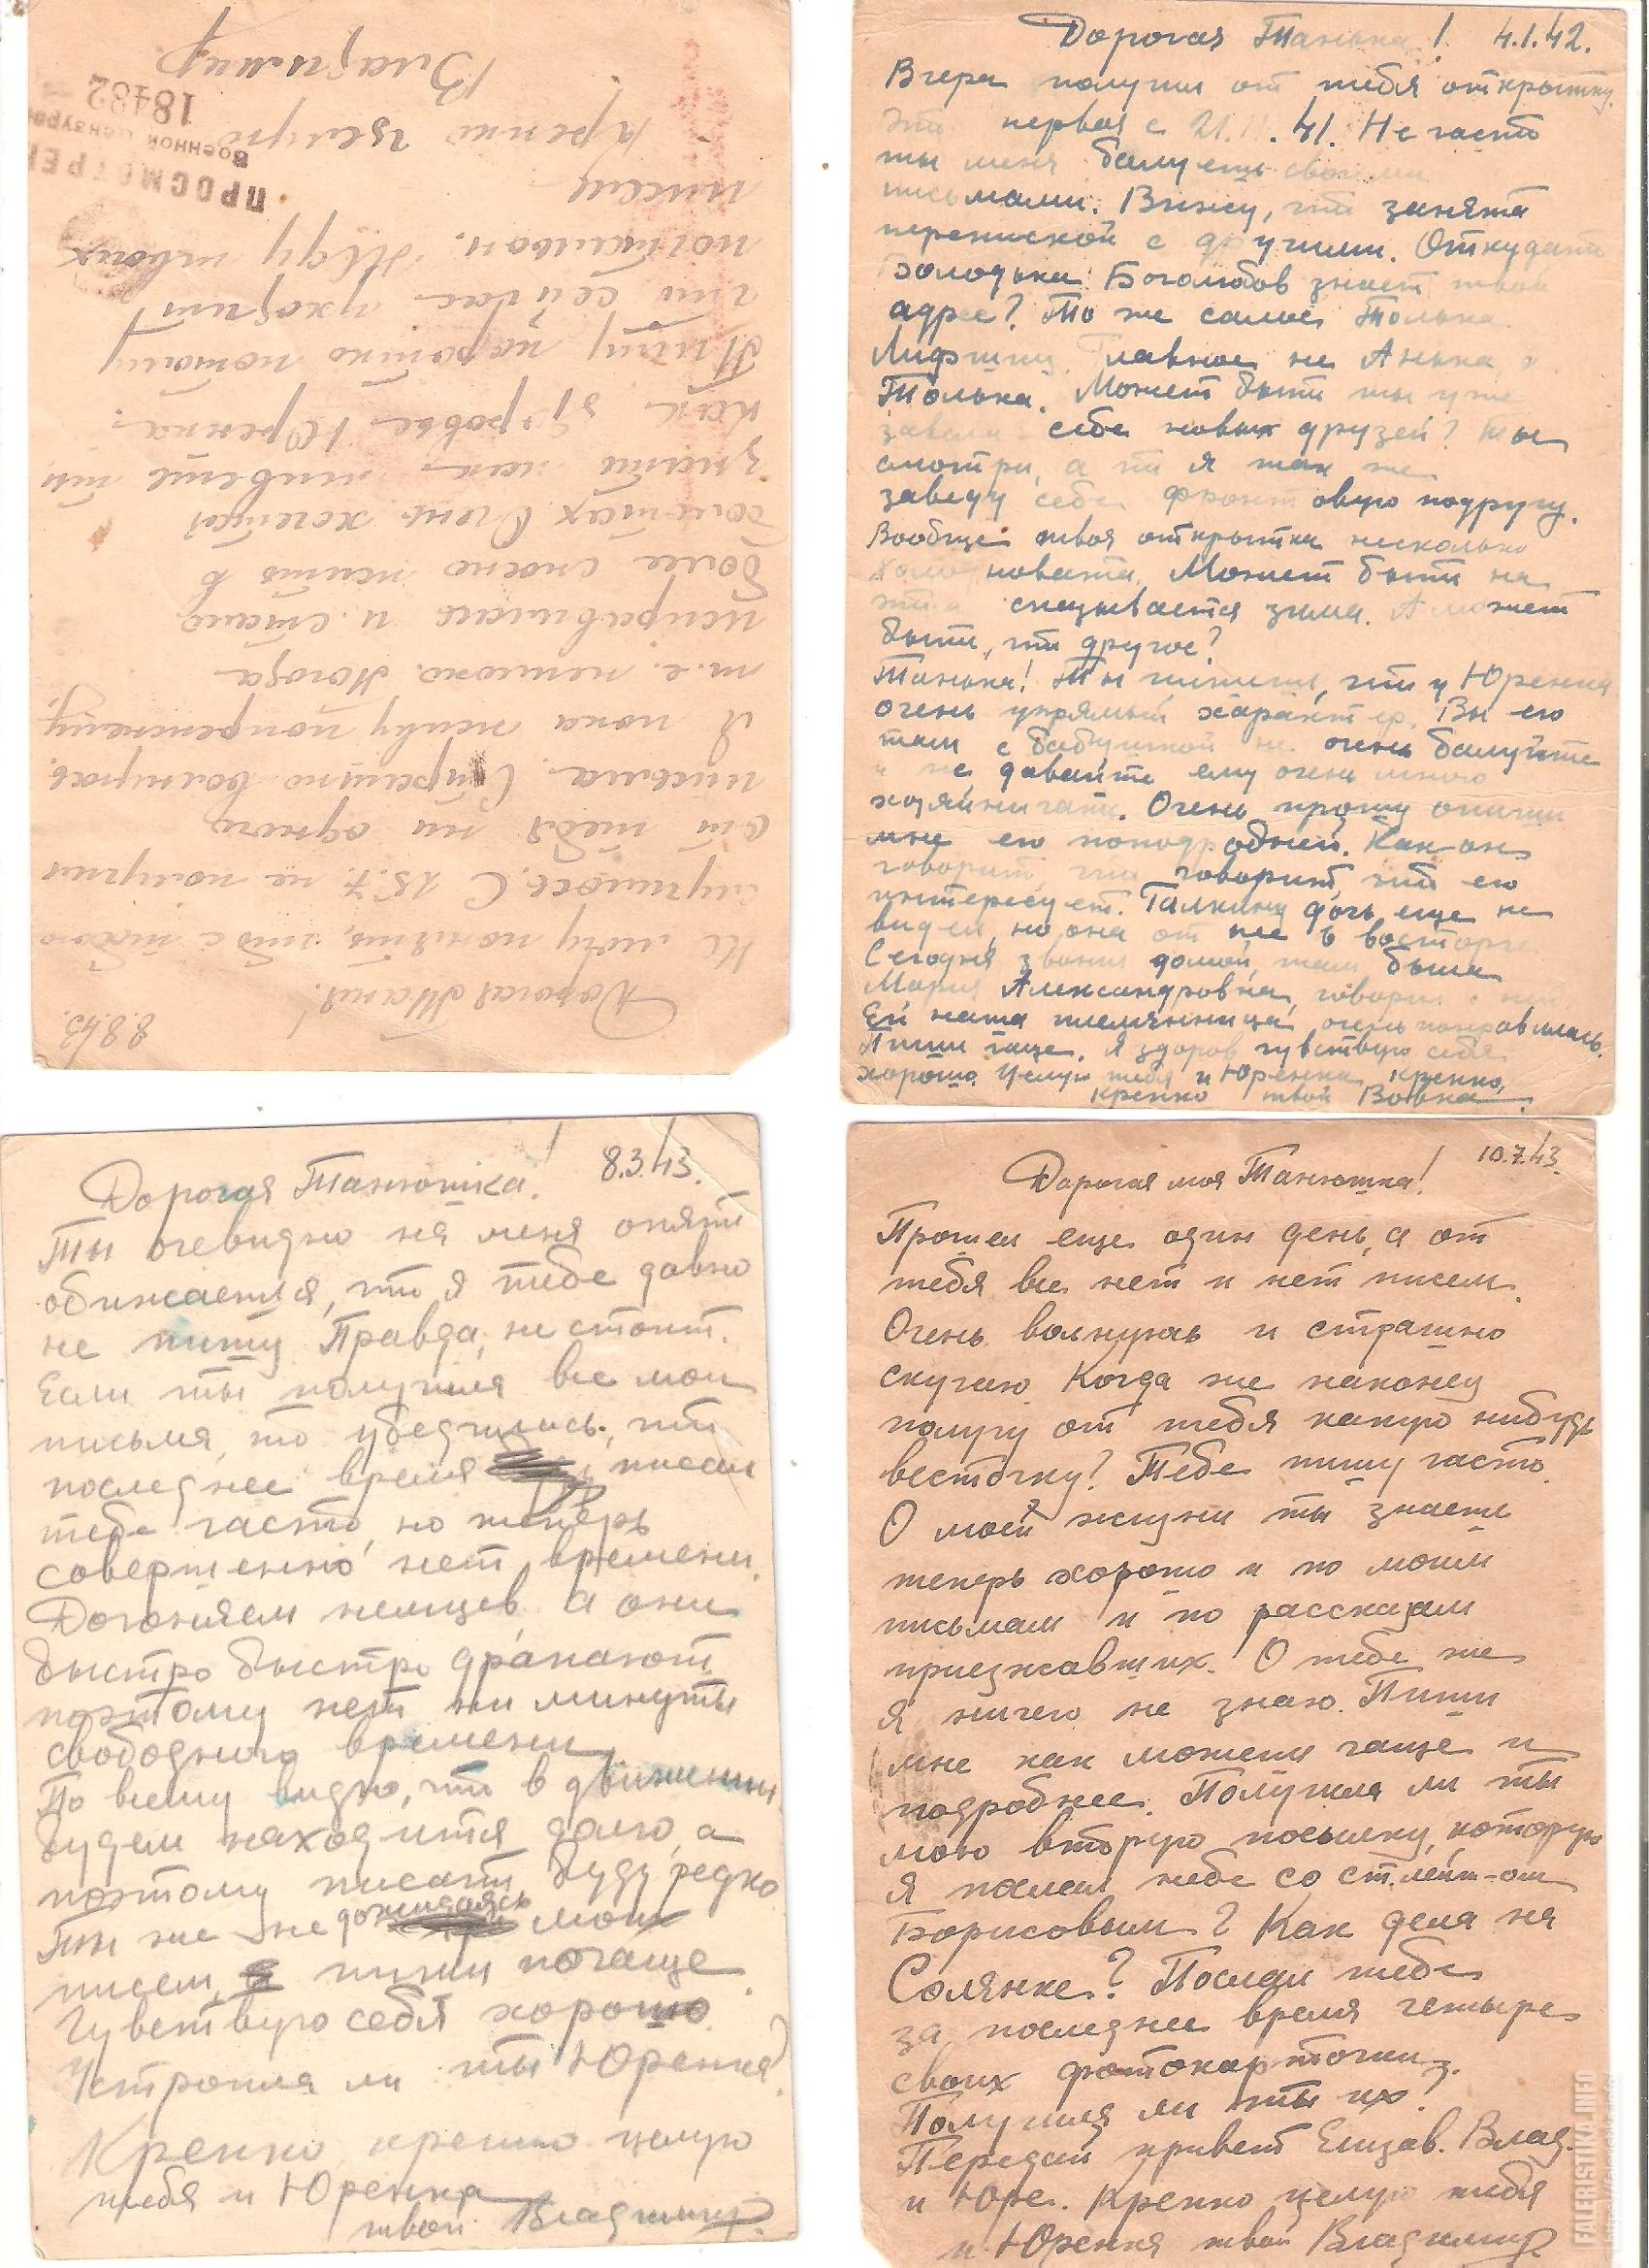 8.8.43.
Дорогая Таня!
Не могу понять, что с тобою
случилось. С 15.7. не получил
от тебя ни одного
письма. Страшно волнуюсь.
Я пока живу по прежнему,
т.е. неплохо. Погода
исправилась и стало
более сносно жить в
болотах. Очень хочется
знать как живешь ты
как здоровье Юренка.
Пишу коротко потому
что сейчас уходит
почтальон. Жду твоих
писем
Крепко целую
Владимир
ПРОСМОТРЕН
Военной Цензурой
18482
Дорогая Танька! 4.1.42.
Вчера получил от тебя открытку.
Это первая с 21. .41. Не часто
ты меня балуешь своими
письмами. Вижу, что занята
перепиской с другими. Откуда то
Володька Боголюбов знает твой
адрес? То же самое Толька
Лифшиц. Главное не Анька, а
Толька. Может быть ты уже
завела себе новых друзей? Ты
смотри, а то я так же
заведу себе фронтовую подругу.
Вообще твоя открытка несколько
холодновата. Может быть на
это сказывается зима. А может
быть, что другое?
Танька! Ты пишешь, что у Юренка
очень упрямый характер. Вы его
там с бабушкой не очень балуйте
и не давайте ему очень много
хозяйничать. Очень прошу опиши
мне его поподробней. Как он
говорит, что говорит, что его
интересует. Галкину дочь еще не
видел, но она от нее в восторге
Сегодня звонил домой, там была
Мария Александровна, говорил с ней
Ей наша племянница очень понравилась.
Пиши чаще. Я здоров чувствую себя
хорошо. Целую тебя и Юренка крепко,
крепко твой Вовка.
Дорогая Танюшка! 8.3.43.
Ты очевидно на меня опять
обижаешься, что я тебе давно
не пишу Правда, не стоит.
Если ты получила все мои
письма, то убедилась, что
последнее время писал
тебе часто, но теперь
совершенно нет времени.
Догоняем немцев. А они
быстро быстро драпают
поэтому нет ни минуты
свободного времени
По всему видно, что в движении
будем находится долго, а
поэтому писать буду редко
Ты же не дожидаясь моих
писем, пиши почаще.
Чувствую себя хорошо.
Устроила ли ты Юренка?
Крепко крепко целую
тебя и Юренка
твой Владимир.
Дорогая моя Танюшка! 10.7.43.
Прошел еще один день, а от
тебя все нет и нет писем.
Очень волнуюсь и страшно
скучаю Когда же наконец
получу от тебя какую нибудь
весточку? Тебе пишу часто.
О моей жизни ты знаешь
теперь хорошо и по моим
письмам и по рассказам
приезжавших. О тебе же
я ничего не знаю. Пиши
мне как можешь чаще и
подробнее. Получила ли ты
мою вторую посылку, которую
я послал тебе со ст. лейт-ом
Борисовым? Как дела на
Солянке? Послал тебе
за последнее время четыре
своих фотокарточки.
Получила ли ты их?
Передай привет Елизав. Влад.
и Юре. Крепко целую тебя
и Юренка твой Владимир.
FALERISTIKA.INFO